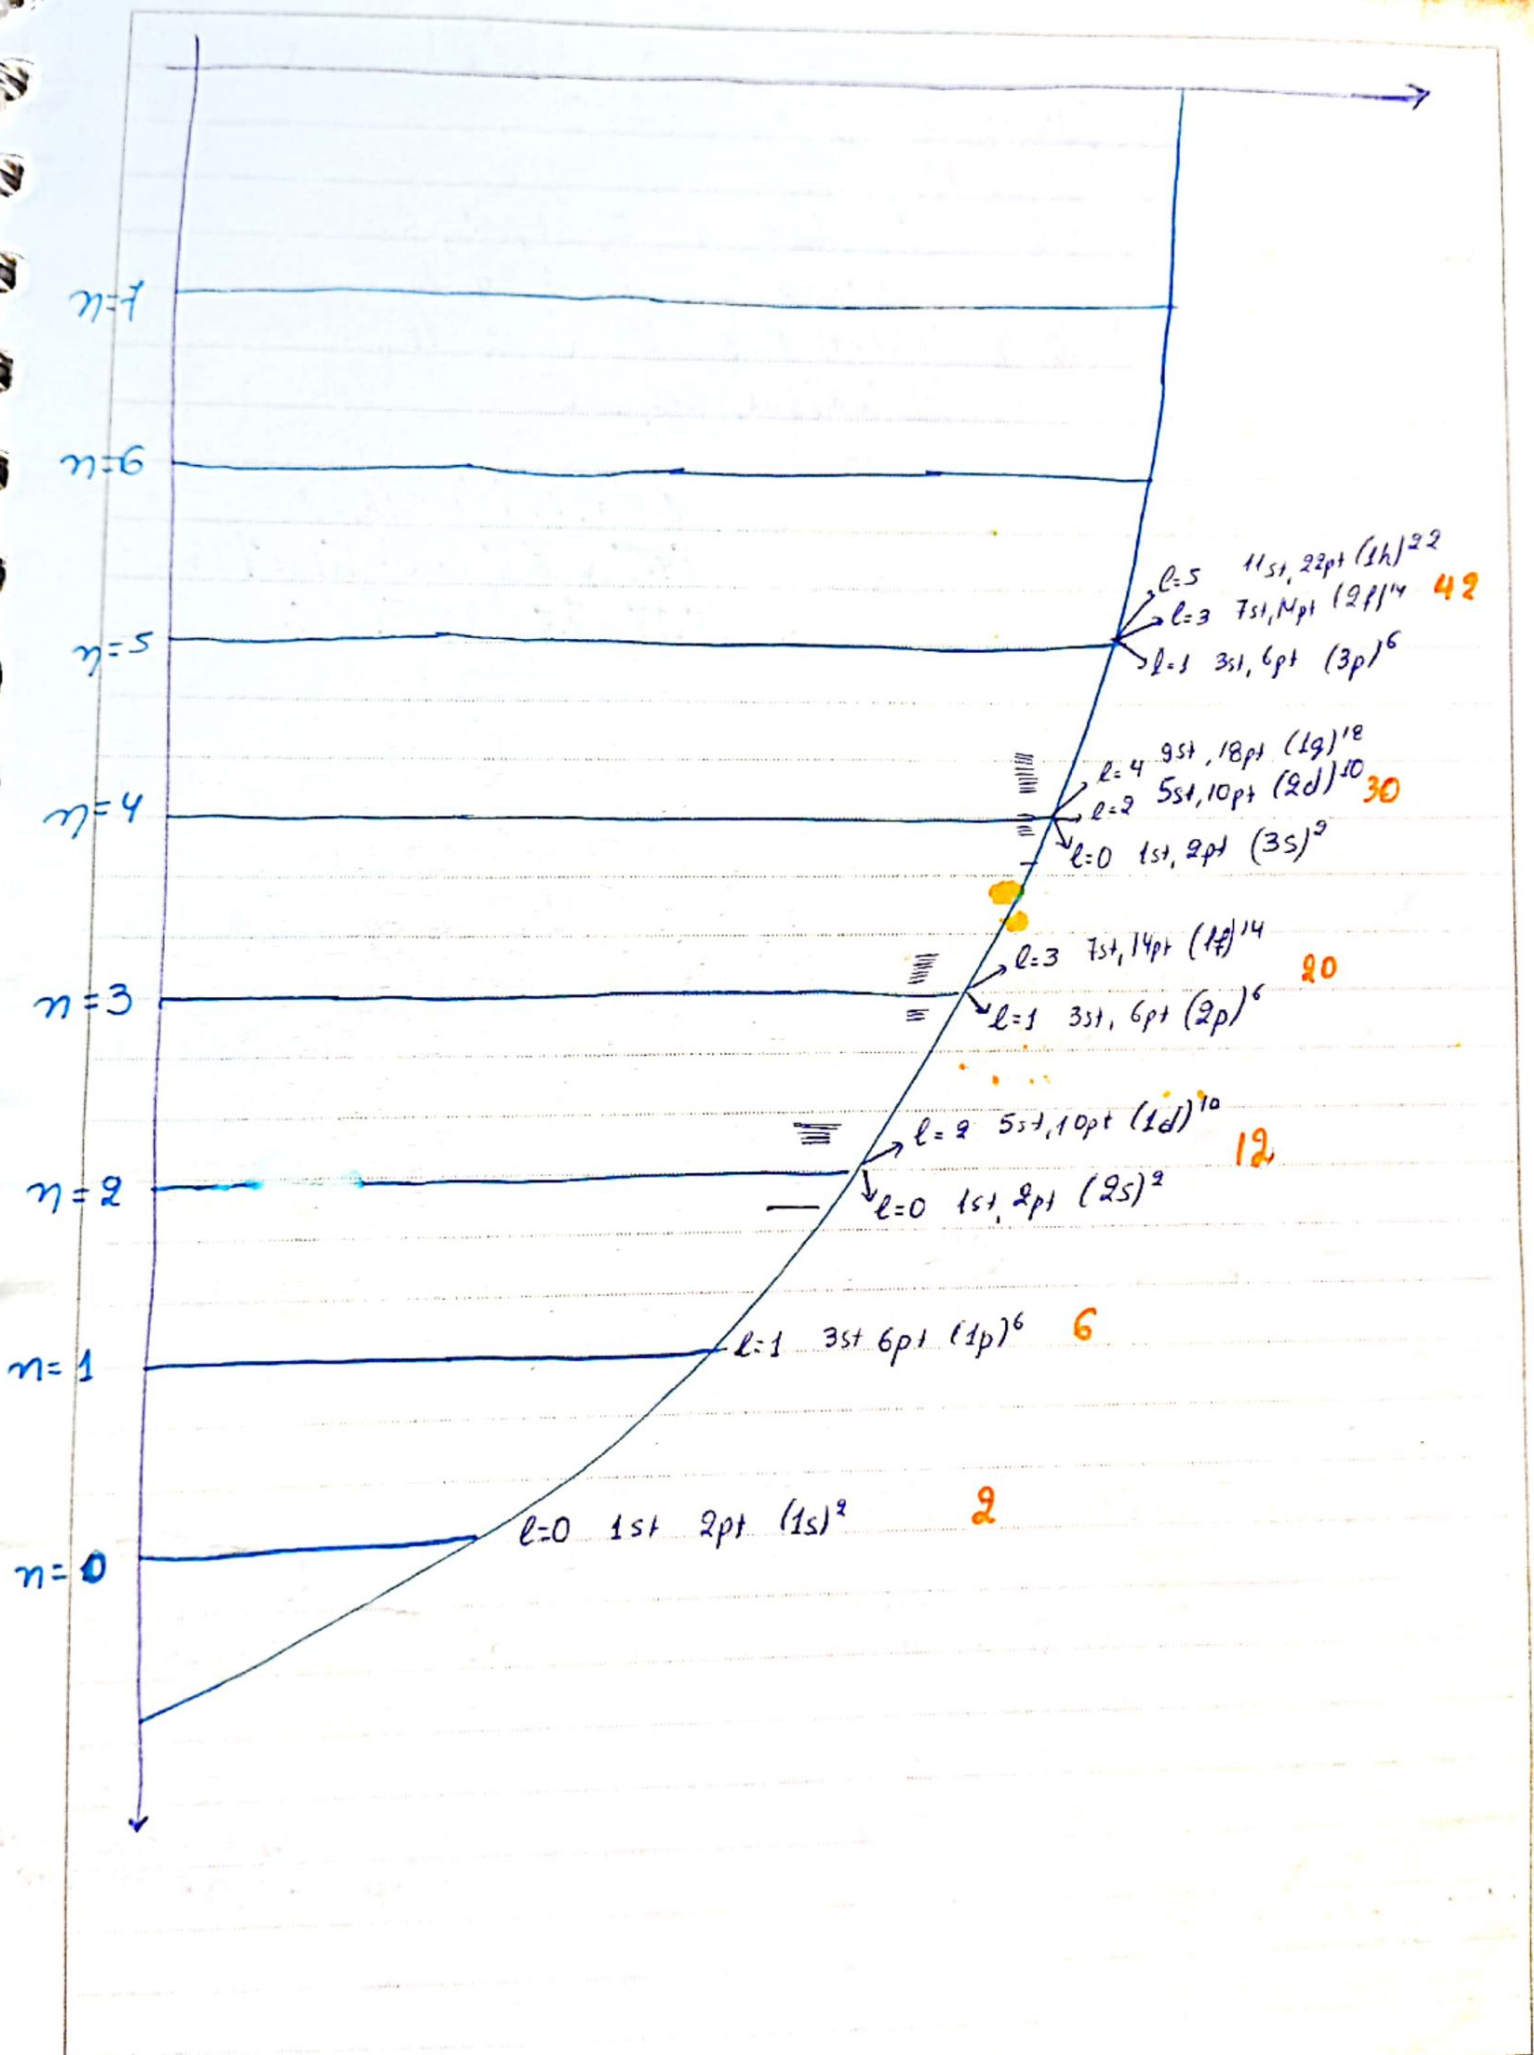 n=7
n=6
l=5 11st, 22pt (1h)²²
l=3 7st, 14pt (2f)¹⁴ 42
n=5
l=1 3st, 6pt (3p)⁶
l=4 9st, 18pt (1g)¹⁸
l=2 5st, 10pt (2d)¹⁰ 30
n=4
l=0 1st, 2pt (3s)²
l=3 7st, 14pt (1f)¹⁴
20
n=3
l=1 3st, 6pt (2p)⁶
l=2 5st, 10pt (1d)¹⁰
12
n=2
l=0 1st, 2pt (2s)²
l=1 3st 6pt (1p)⁶ 6
n=1
l=0 1st 2pt (1s)² 2
n=0